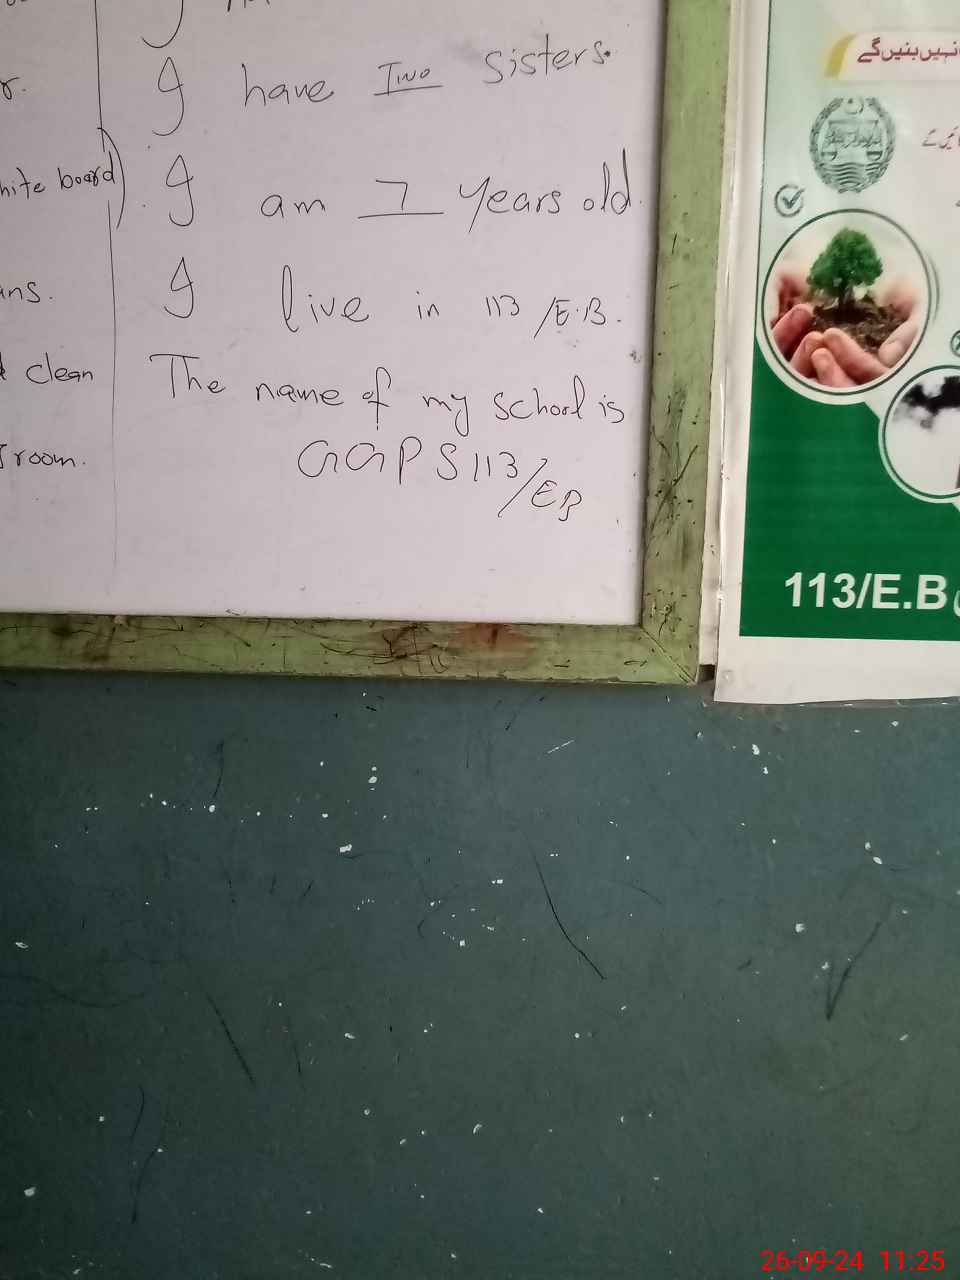 r.
hite board)
ans.
clean
room.
I have Two sisters.
I am 7 years old.
I live in 113/E.B.
The name of my school is
GGPS 113/EB
نہیں بنیں گے
113/E.B
26-09-24 11:25